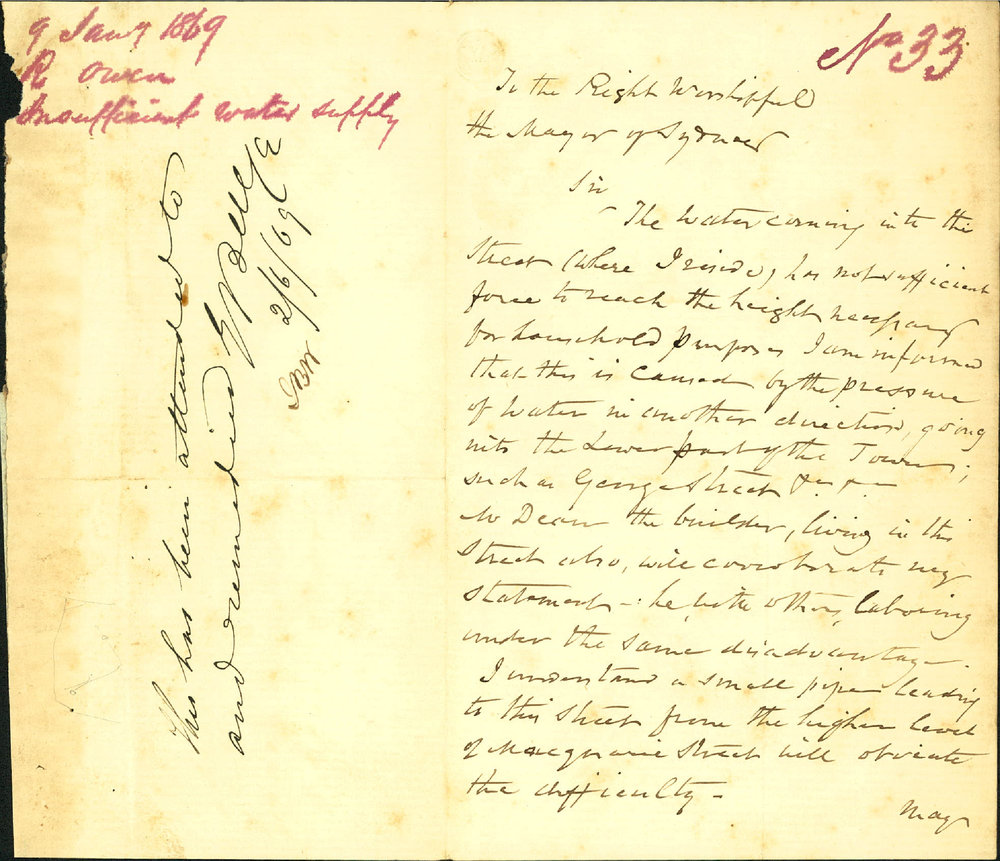 9 Jany 1869
R Owen
Insufficient water supply
This has been attended to
and remedied E Bell CE
2/6/69
No 33
To the Right Worshipful
the Mayor of Sydney
Sir
The water coming into the
Street (where I reside) has not sufficient
force to reach the height necessary
for household purposes I am informed
that this is caused by the pressure
of water in another direction, going
into the Lower part of the Town;
such as George Street &c &c
Mr Dean the builder, living in this
Street also, will corroborate my
statement - he, with others, laboring
under the same disadvantage.
I understand a small pipe leading
to this street from the higher level
of Macquarie Street will obviate
the difficulty -
May